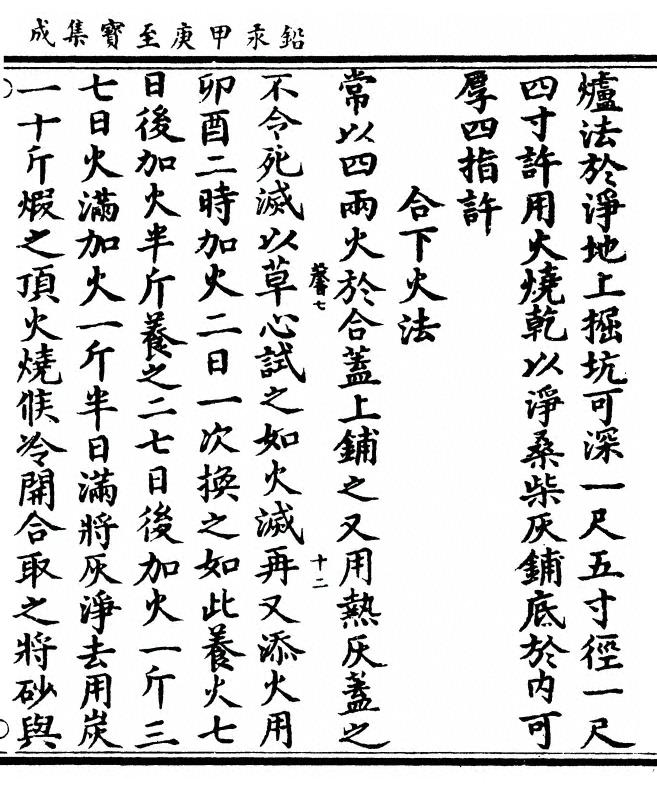 鉛汞甲庚至寶集成
爐法於淨地上掘坑可深一尺五寸徑一尺
四寸許用火燒乾以淨桑柴灰鋪底於內可
厚四指許
合下火法
常以四兩火於合蓋上鋪之又用熱灰蓋之
馨七
十二
不令死滅以草心試之如火滅再又添火用
卯酉二時加火二日一次換之如此養火七
日後加火半斤養之二七日後加火一斤三
七日火滿加火一斤半日滿將灰淨去用炭
一十斤煆之頂火燒候冷開合取之將砂與